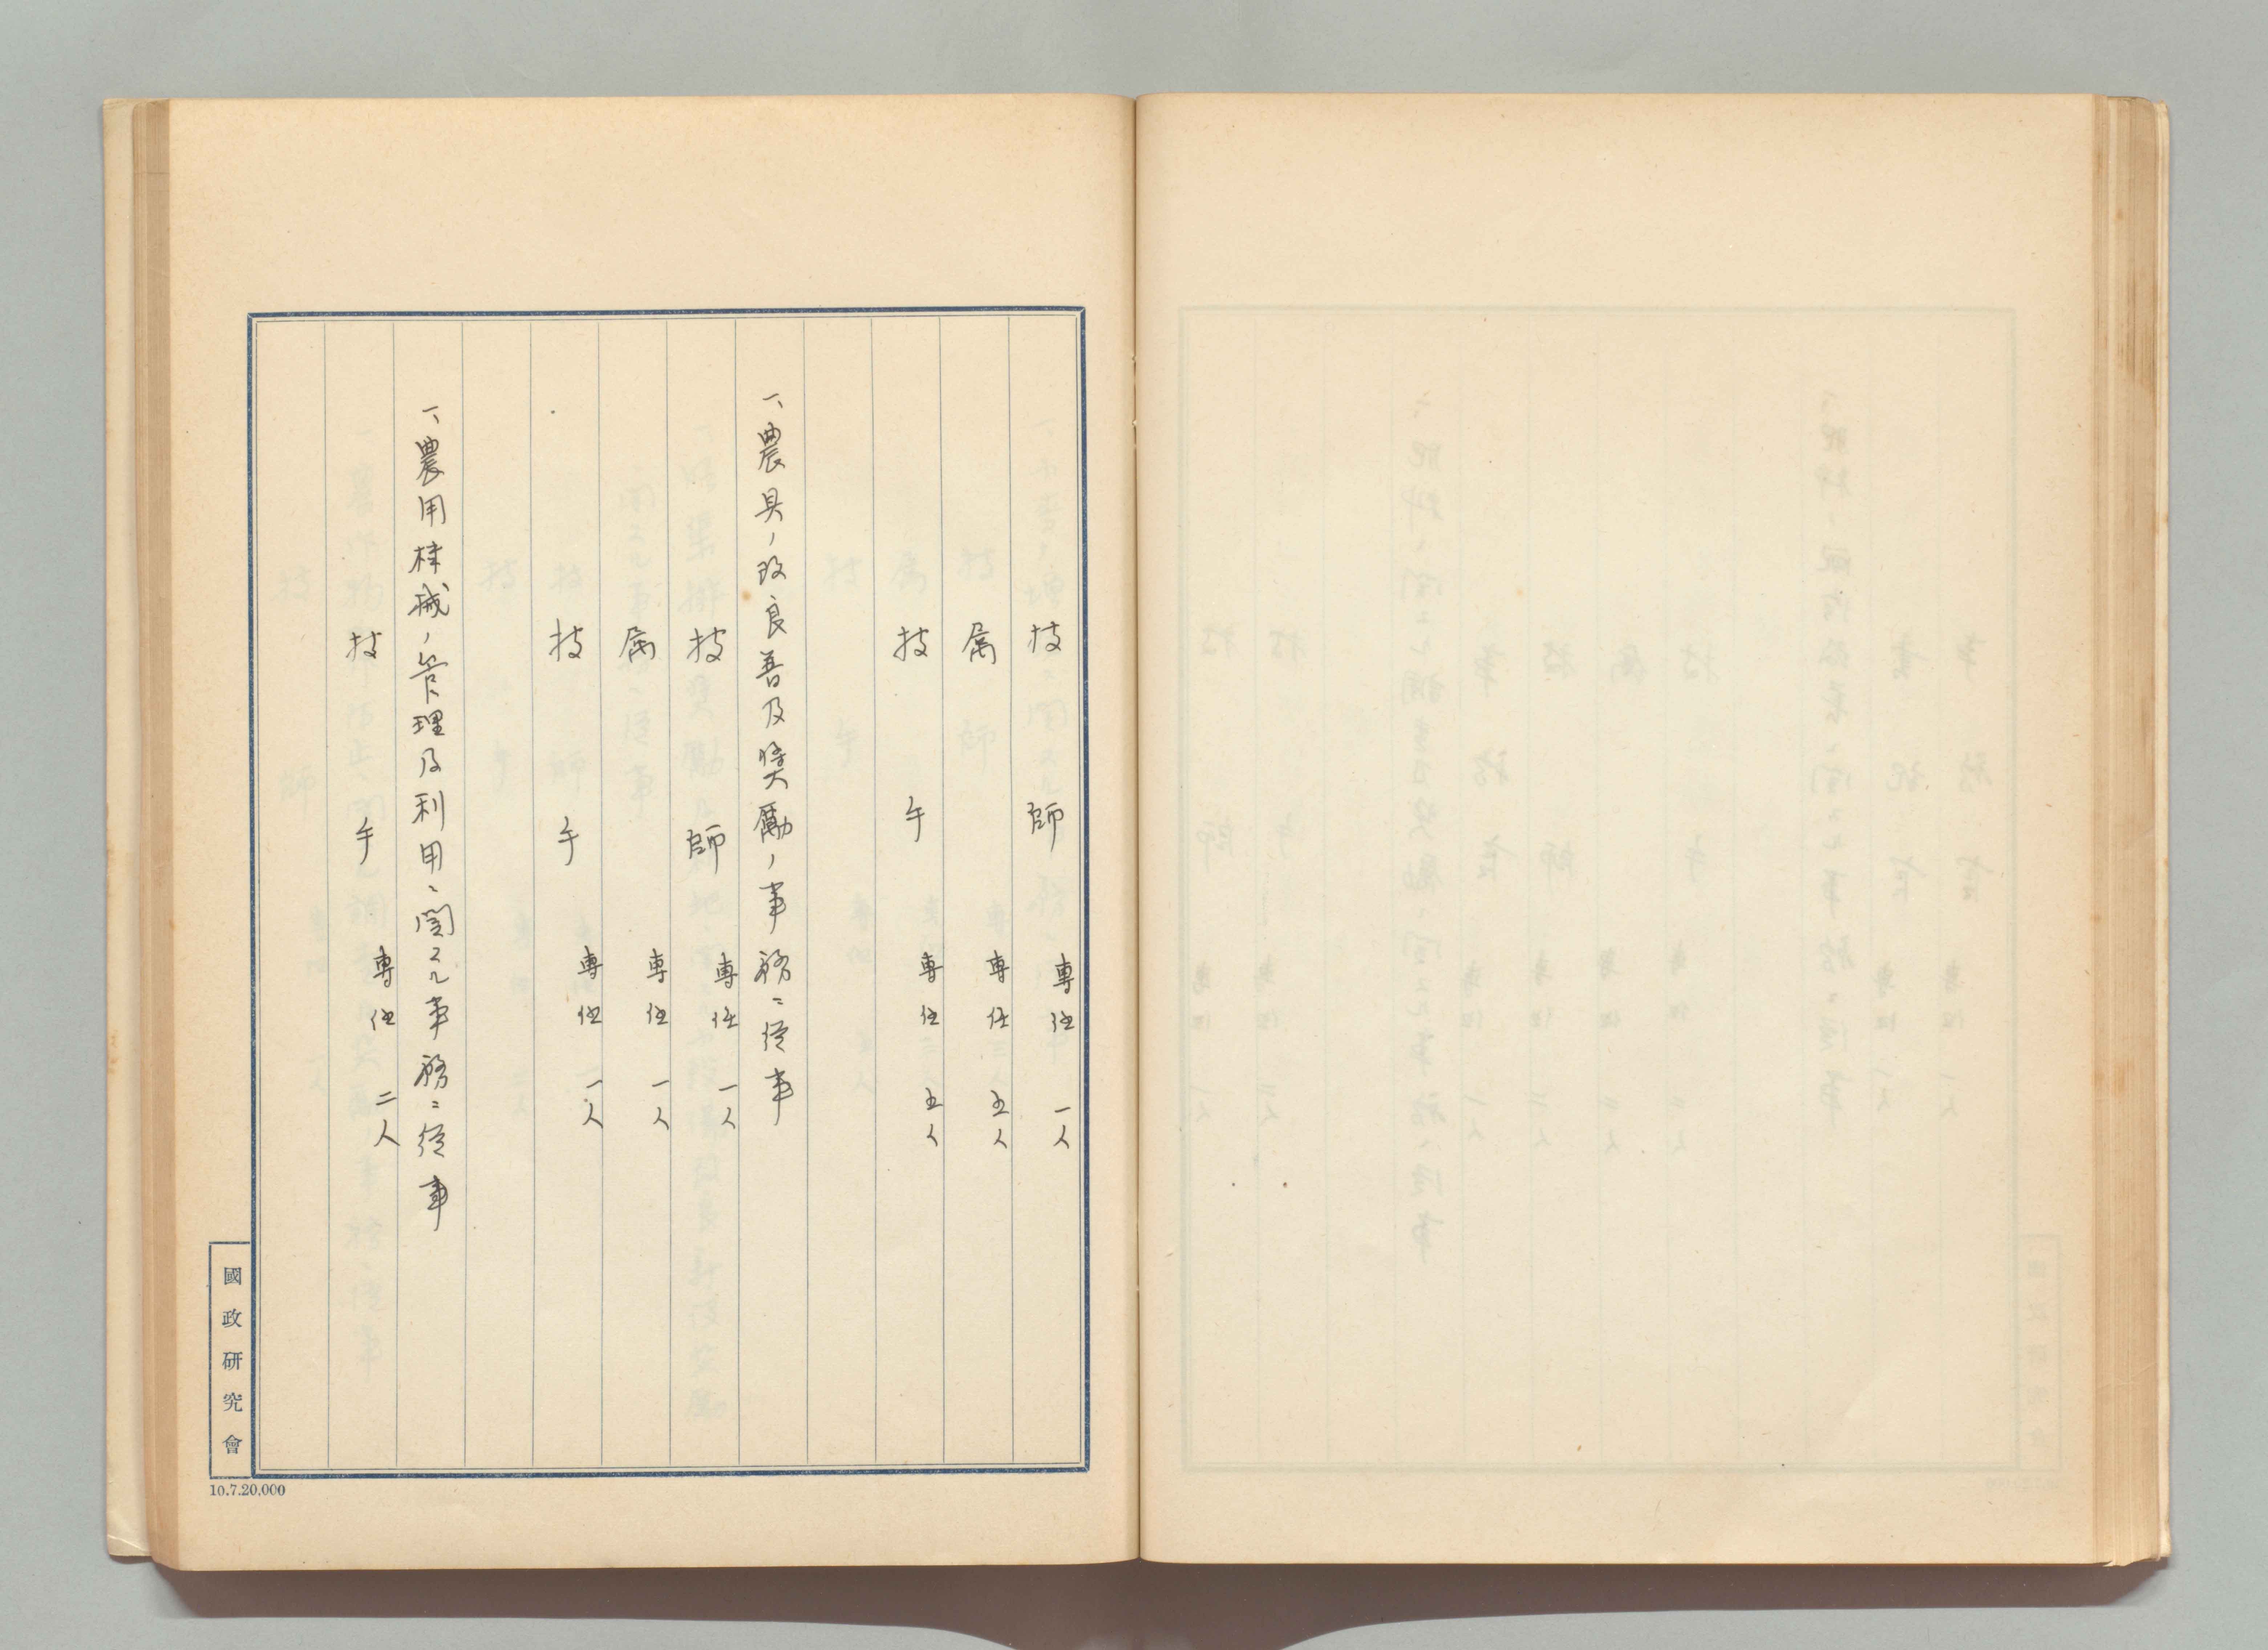 技師 専任 一人
属 専任 五人
技手 専任 五人
一、農具ノ改良普及奨励ノ事務ニ従事
技師 専任 一人
属 専任 一人
技手 専任 一人
一、農用機械ノ管理及利用ニ関スル事務ニ従事
技手 専任 二人
國政研究會
10.7.20.000